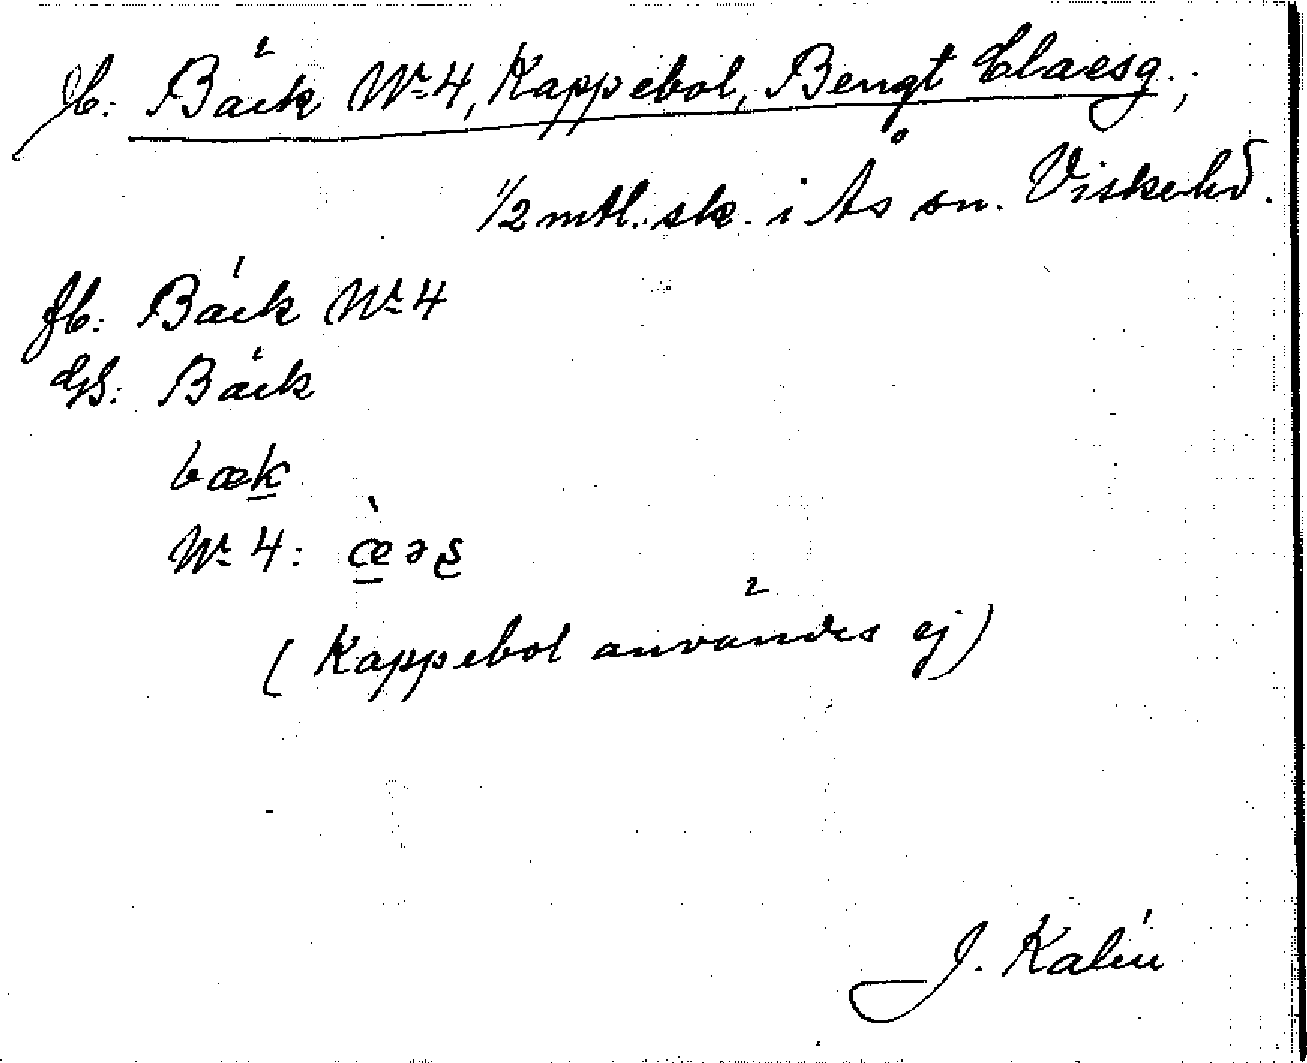 Jb: Bäck Nr 4, Kappebol, Bengt Claesg.;
1/2 mtl. sk. i Ås sn. Viske hd.
fb: Bäck Nr 4
GS: Bäck
bæk
Nr 4:
(Kappebol användes ej)
J. Kalén